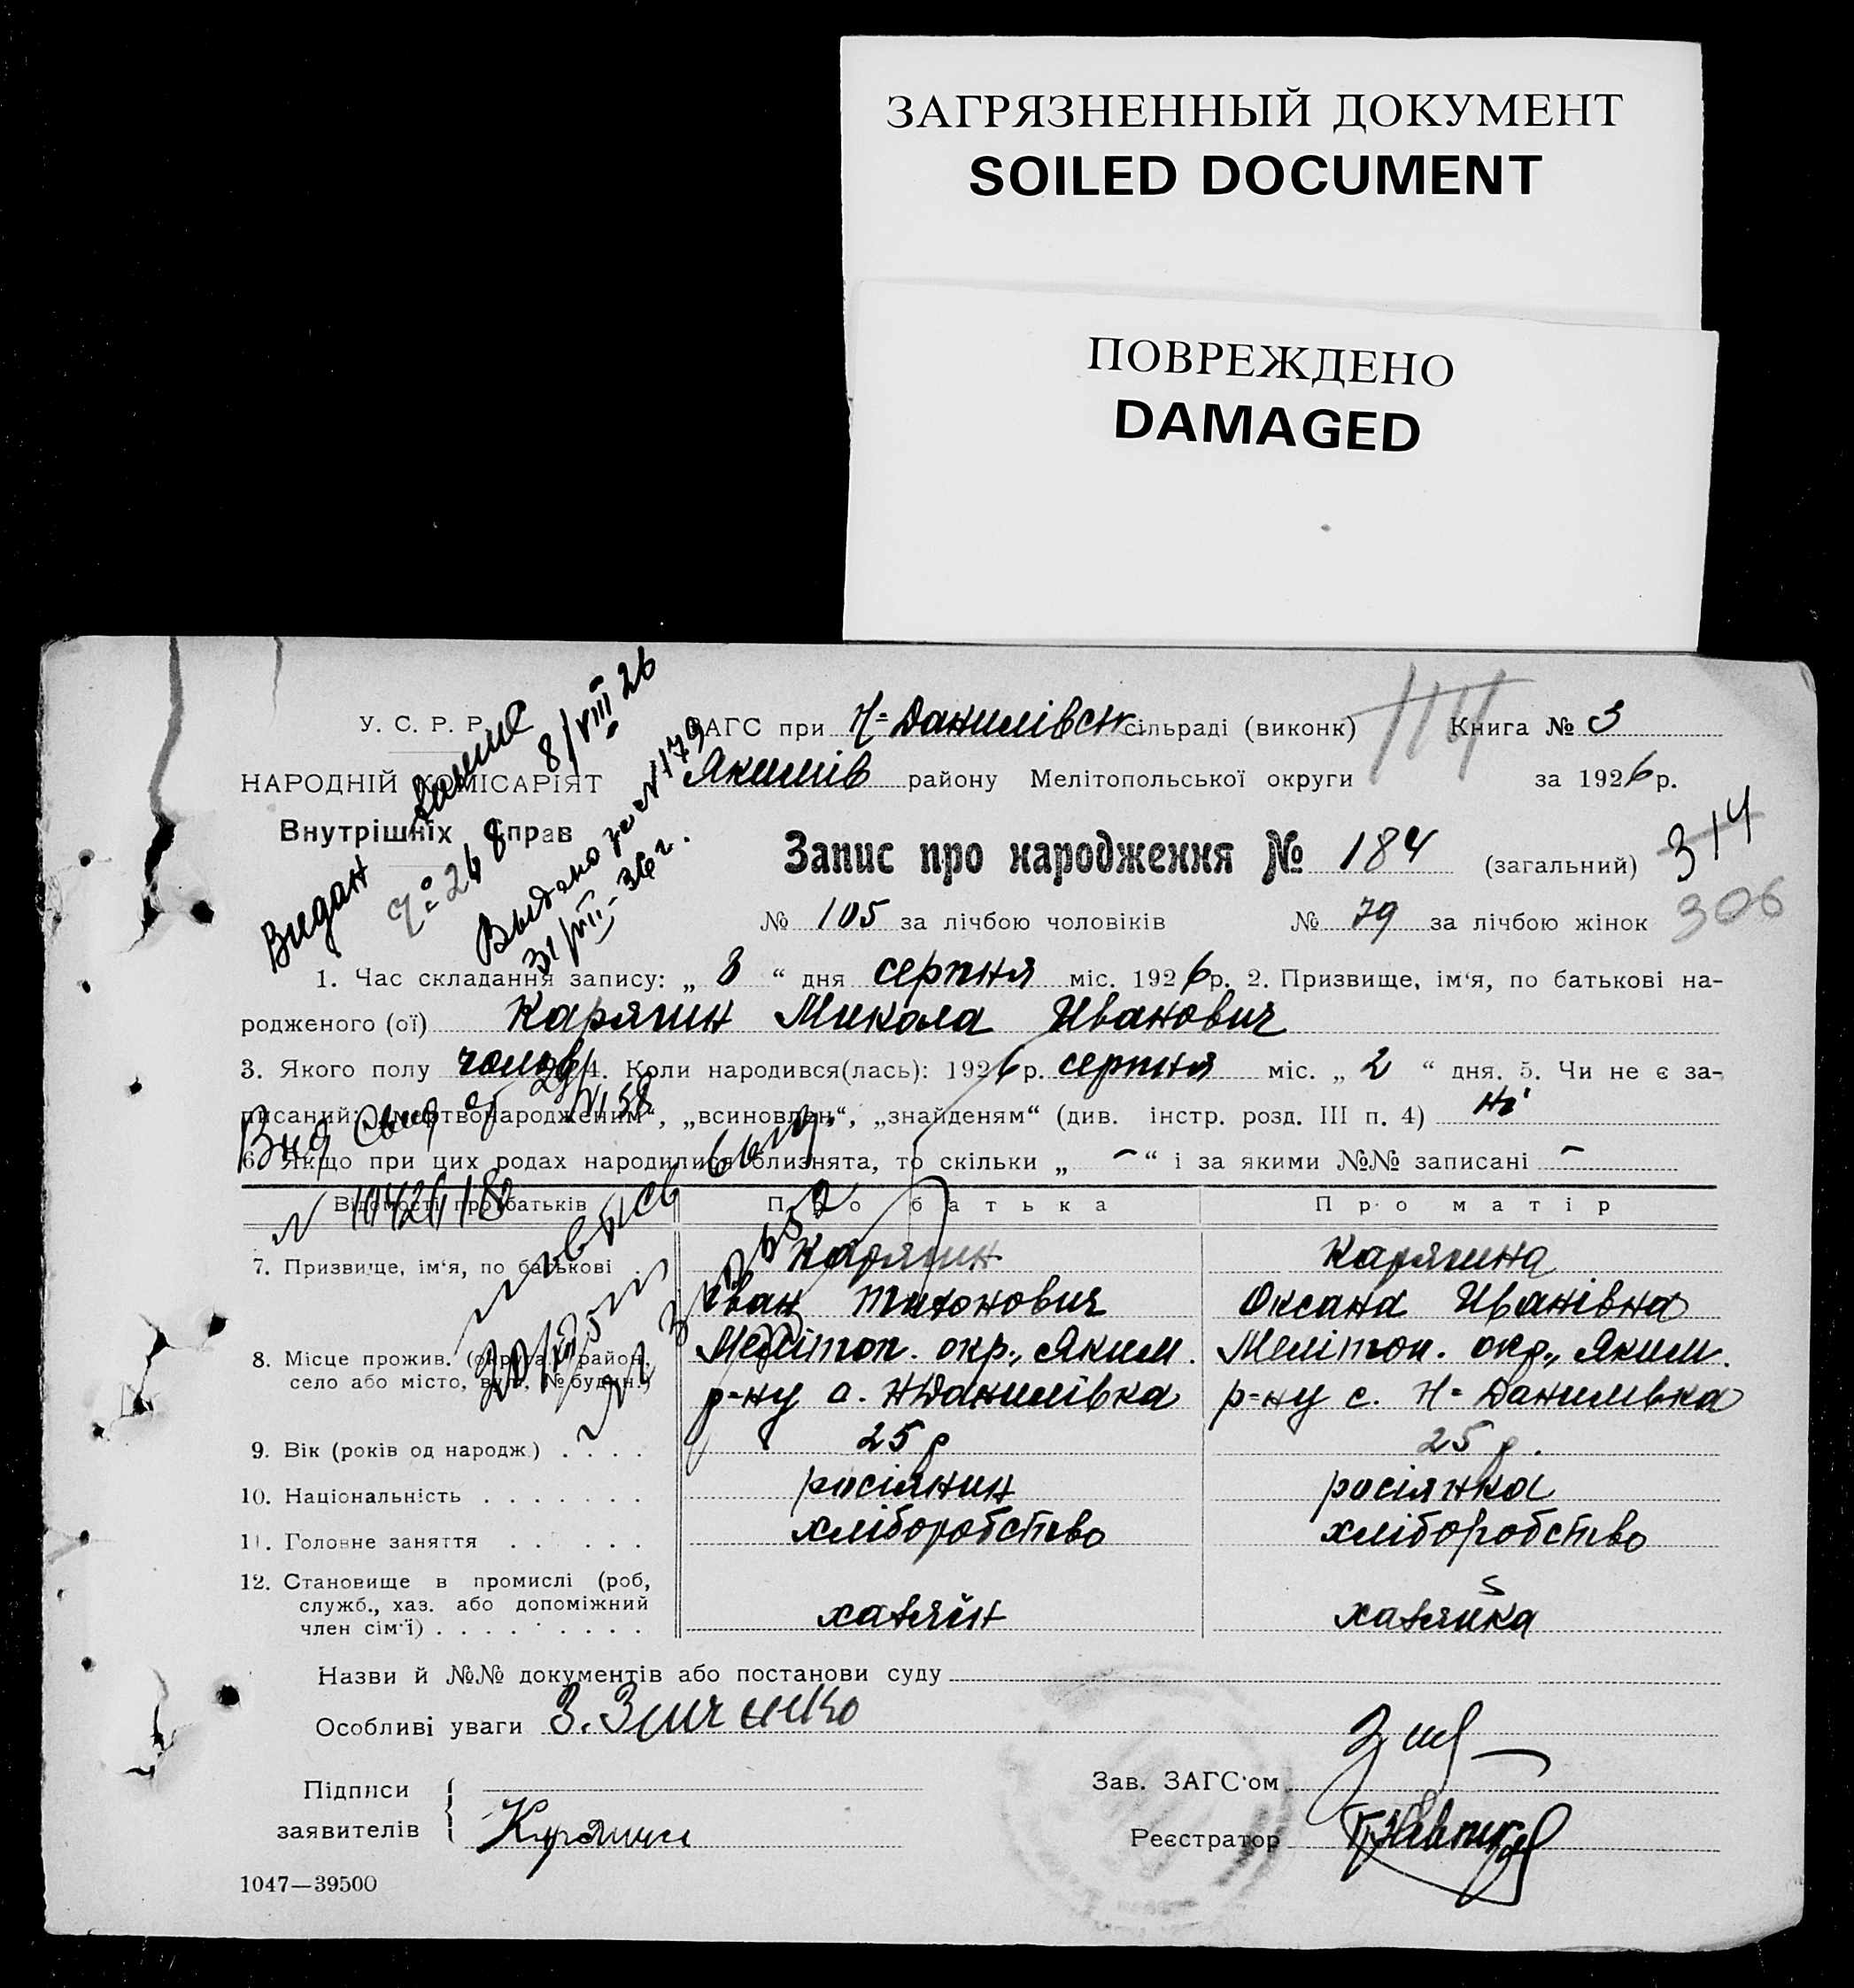 ЗАГРЯЗНЕННЫЙ ДОКУМЕНТ
SOILED DOCUMENT
ПОВРЕЖДЕНО
DAMAGED
У. С. Р. Р.
НАРОДНІЙ КОМІСАРІЯТ
Внутрішніх Справ
Видан
8/VIII 26
Выдано за №179
31/VIII-36 г.
ЗАГС при Н=Данилівськ сільраді (виконк) Книга № 3
Якимів району Мелітопольської округи за 1926 р.
Запис про народження № 184 (загальний)
314
306
№ 105 за лічбою чоловіків № 79 за лічбою жінок
1. Час складання запису: „ 8 “ дня серпня міс. 1926 р. 2. Призвище, ім‘я, по батькові на-
родженого (ої) Карягин Микола Иванович
3. Якого полу чолов 4. Коли народився(лась): 1926 р. серпня міс. „ 2 “ дня. 5. Чи не є за-
писаний: „мертвонародженим“, „всиновлен“, „знайденям“ (див. інстр. розд. III п. 4) ні
6. Якщо при цих родах народилися близнята, то скільки „ – “ і за якими №№ записані –
Відомості про батьків Про батька Про матір
7. Призвище, ім‘я, по батькові Карягин Карягина
Іван Тихонович Оксана Иванівна
8. Місце прожив. (округа, район, Мелітоп. окр., Яким. Мелітоп. окр., Яким.
село або місто, вул., № будин.) р-ну с. НДанилівка р=ну с. Н=Данилівка
9. Вік (років од народж.) 25 р 25 р.
10. Національність росіянин росіянка
11. Головне заняття хліборобство хліборобство
12. Становище в промислі (роб,
служб., хаз. або допоміжний
член сім‘ї) хазяїн хазяйка
Назви й №№ документів або постанови суду
Особливі уваги З. Зинченко
Підписи
заявителів Карягин
Зав. ЗАГС‘ом
Реєстратор
1047—39500